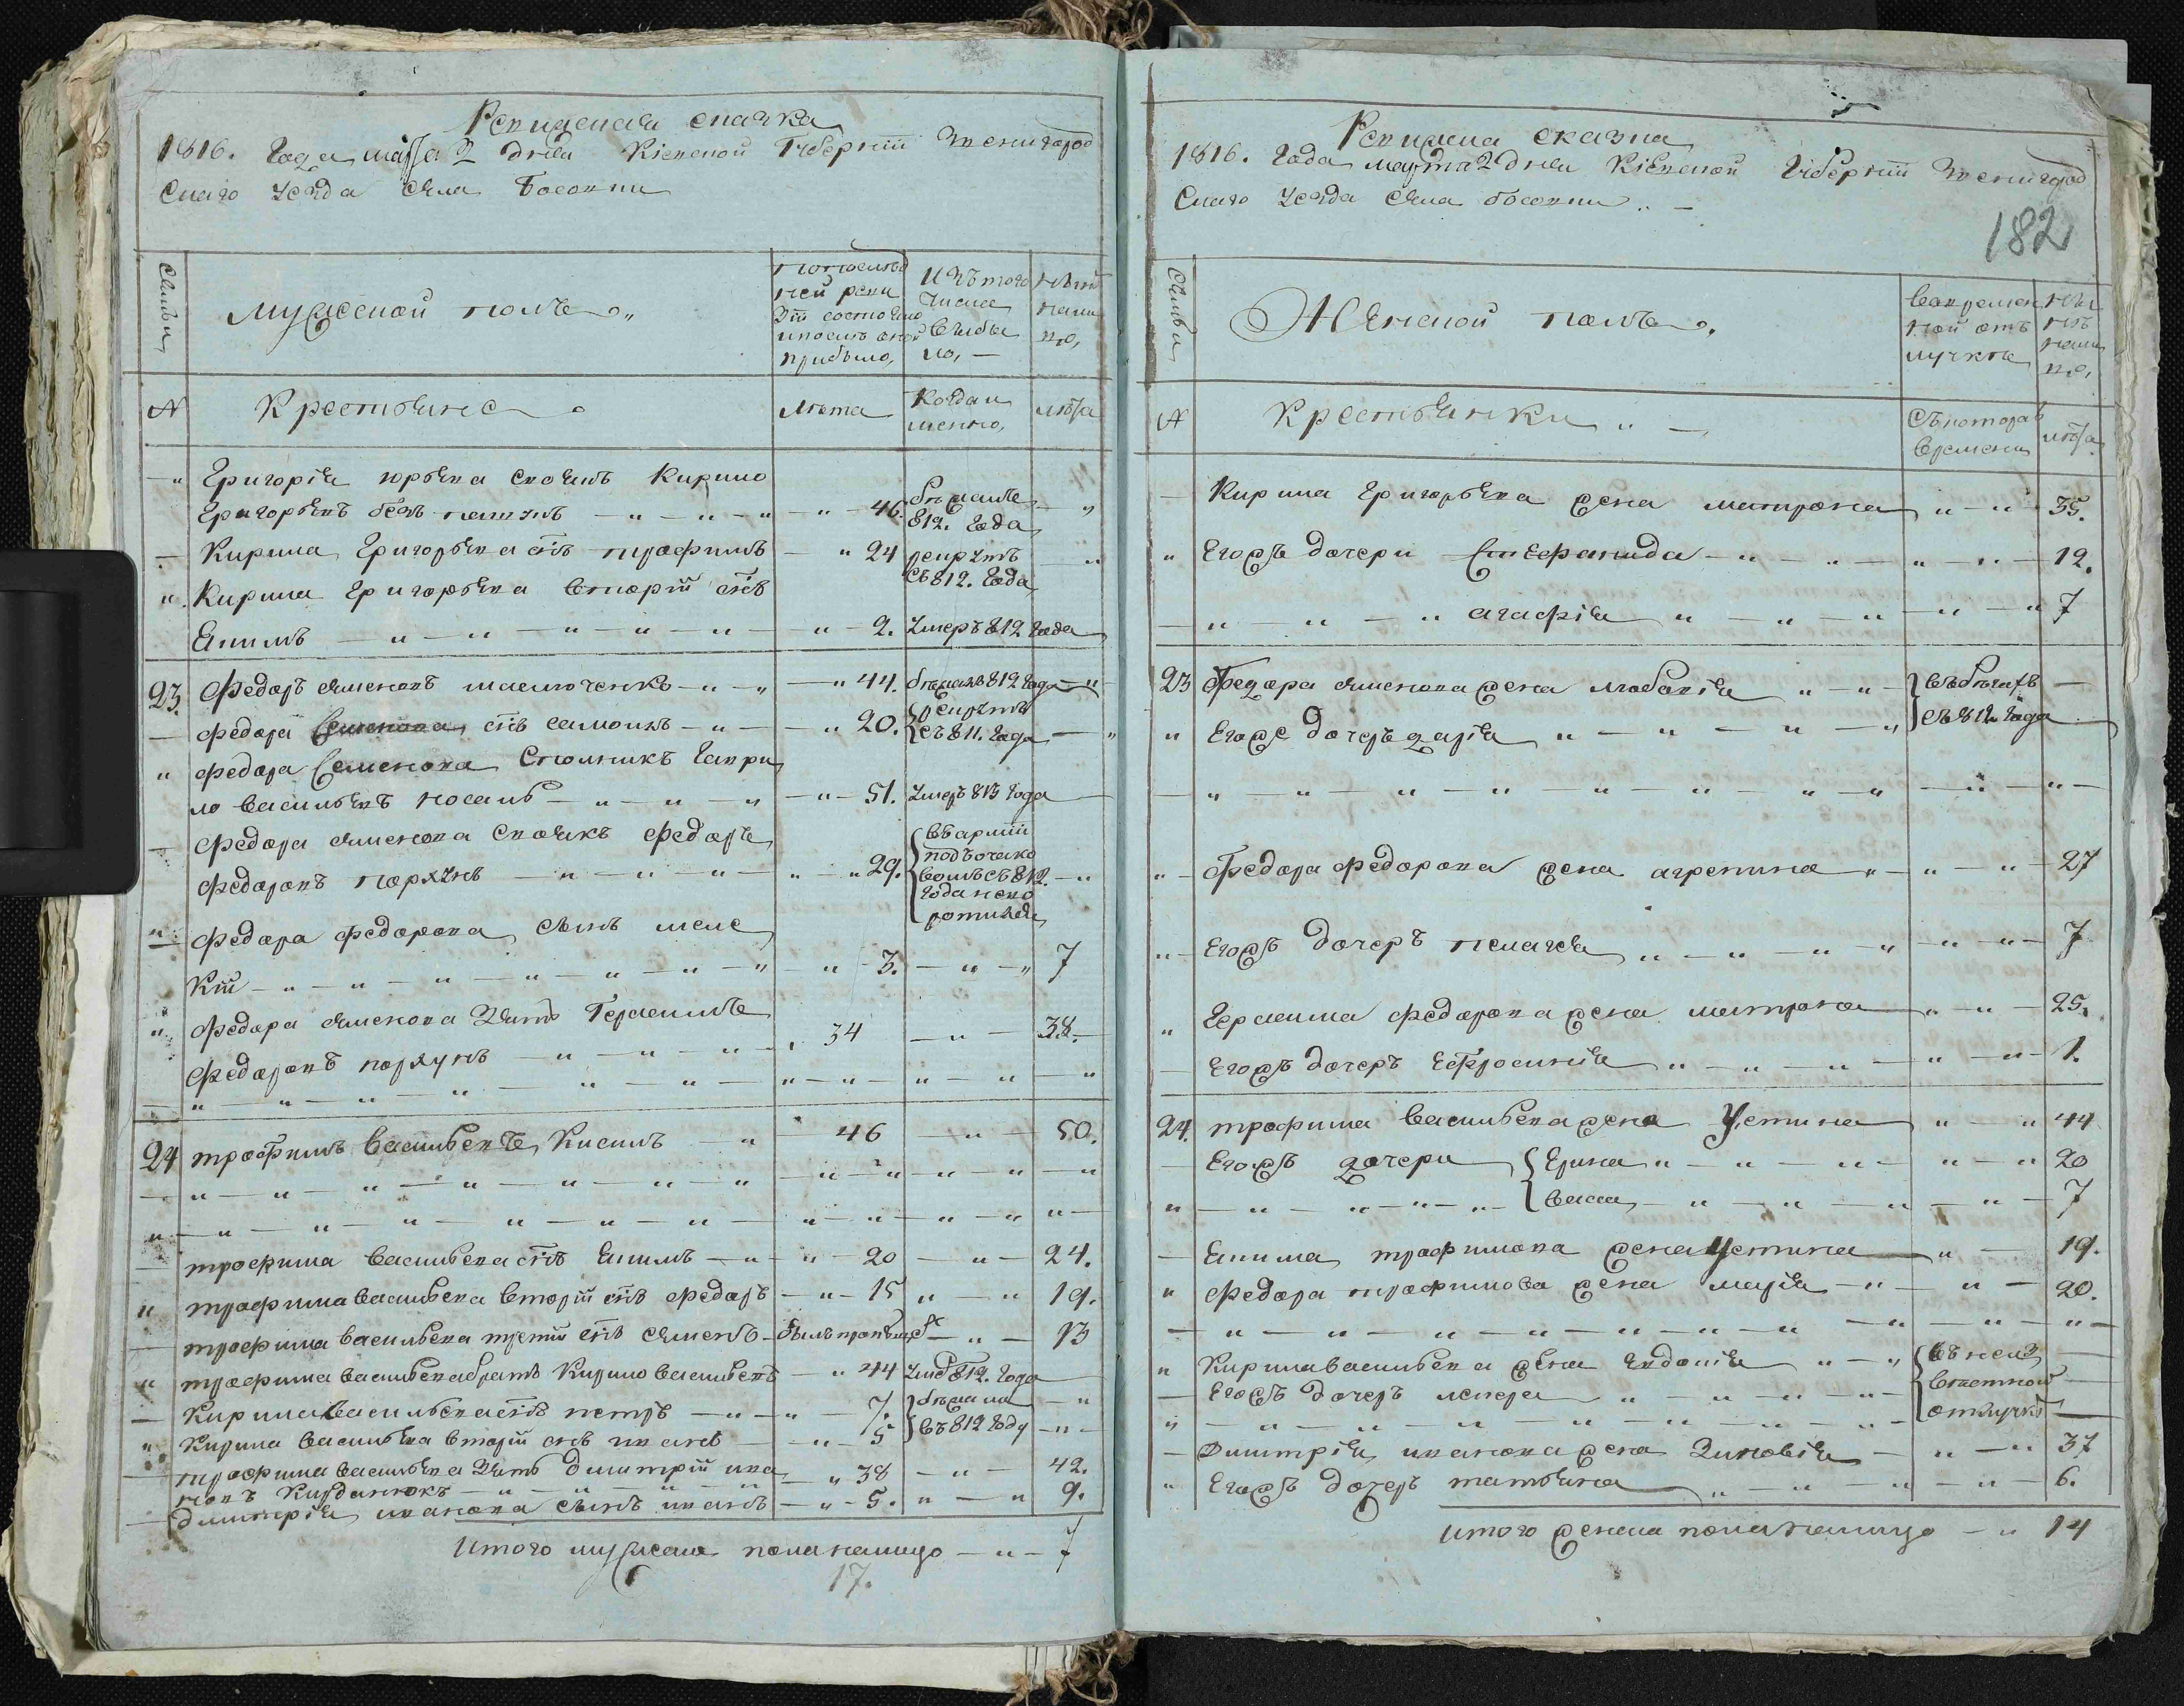 Ревизская сказка
1816. Года марта 2 дня Кіевской Губерніи Звенигород
скаго уезда села Босовки
Семьи
мужеской полъ
По последней ревизіи состояло и после оной прибыло,
Изъ того числа выбыло, —
Ныне на лицо,
№
Крестьяне
Лета
Когда именно,
лета
" Григорія юрьева своякъ Кирило
Григорьевъ — " — " — " — " — 46. бежалъ 812. года "
— Кирила Григорьева снъ трофимъ — " 24 рекрутъ съ 812. года "
". Кирила Григорьева вторій снъ
Екимъ — " — " — " — " — " — " — 2. умеръ 812 года
23. Федоръ семеновъ — " — " — " 44. бежалъ 812 года — "
— Федора Семенова снъ самоилъ — " — " 20. рекрутъ съ 811. года — "
" Федора Семенова Гаври
ло васильевъ носаль — " — " — " — " — 51. умеръ 813 года
— Федора семенова своякъ Федоръ
Федоровъ порхунъ — " — " — " — " " 29. въ арміи съ 812. года — "
" Федора Федорова сынъ алексій — " — " — " — " — " — 3. — " — " 7
" Федора семенова зять Герасимъ
Федоровъ порхунъ — " — " — " 34 — " — 38.
24 трофимъ васильевъ Кисиль — " 46 — " — 50.
— трофима васильева снъ Екимъ — " — " 20 — " — 24.
" трофима васильева вторій снъ Федоръ — " — 15 " — " 19.
— трофима васильева третій снъ семенъ — былъ 13
" трофима васильева братъ Кирило васильевъ — " 44 умеръ 812. года
— Кирила васильева снъ петръ — " — " — 7. бежали — "
" Кирила васильева вторій снъ иванъ — " — 5 въ 812 году — " —
— трофима васильева зять димитрій ива
новъ — " — 38 — " — 42.
— димитрія иванова сынъ иванъ — " — 5. " — " 9.
Итого мужеска пола налицо — " — 7
17.
Ревизска сказка
1816. Года марта 2 дня Кіевской Губерніи Звенигород
скаго уезда села босовки " —
182
Семьи
Женской полъ.
Во временной отлучке
Ныне на лицо,
№
Крестьянки " —
Съ котораго времени
лета
— Кирила Григорьева жена матрона " — " 35.
" Егожъ дочери Стефанида — " — " — " — " — 12.
— " — " — " агафія " — " — " — " — " 7
23 Федора семенова жена " — " — въ бегахъ —
" Егоже дочеръ дарія " — " — " — " съ 812 года
" — Федора Федорова жена агрепина " — " — " — 27
" — Егожъ дочеръ пелагея " — " — " — " — " — " — 7
" Герасима Федорова жена матрона — " — " — 25.
— Егожъ дочеръ Ефросинія " — " — " — " — " — 1.
24. трофима васильева жена Устина " — " 44
— Егожъ дочери Ерина " — " — " — " — " 20
" — " — " — " — васса — " — " — " — " — 7
— Екима трофимова жена Устина — " — 19.
" Федора трофимова жена марія — " — " — 20.
" Кирила васильева жена Евдокія " — "
— Егожъ дочеръ " — " — " — " — отлучке
— Димитрія иванова жена Зиновія — " — " 37
" Егожъ дочеръ татьяна " — " — " — " — 6.
итого женска пола налицо — " 14